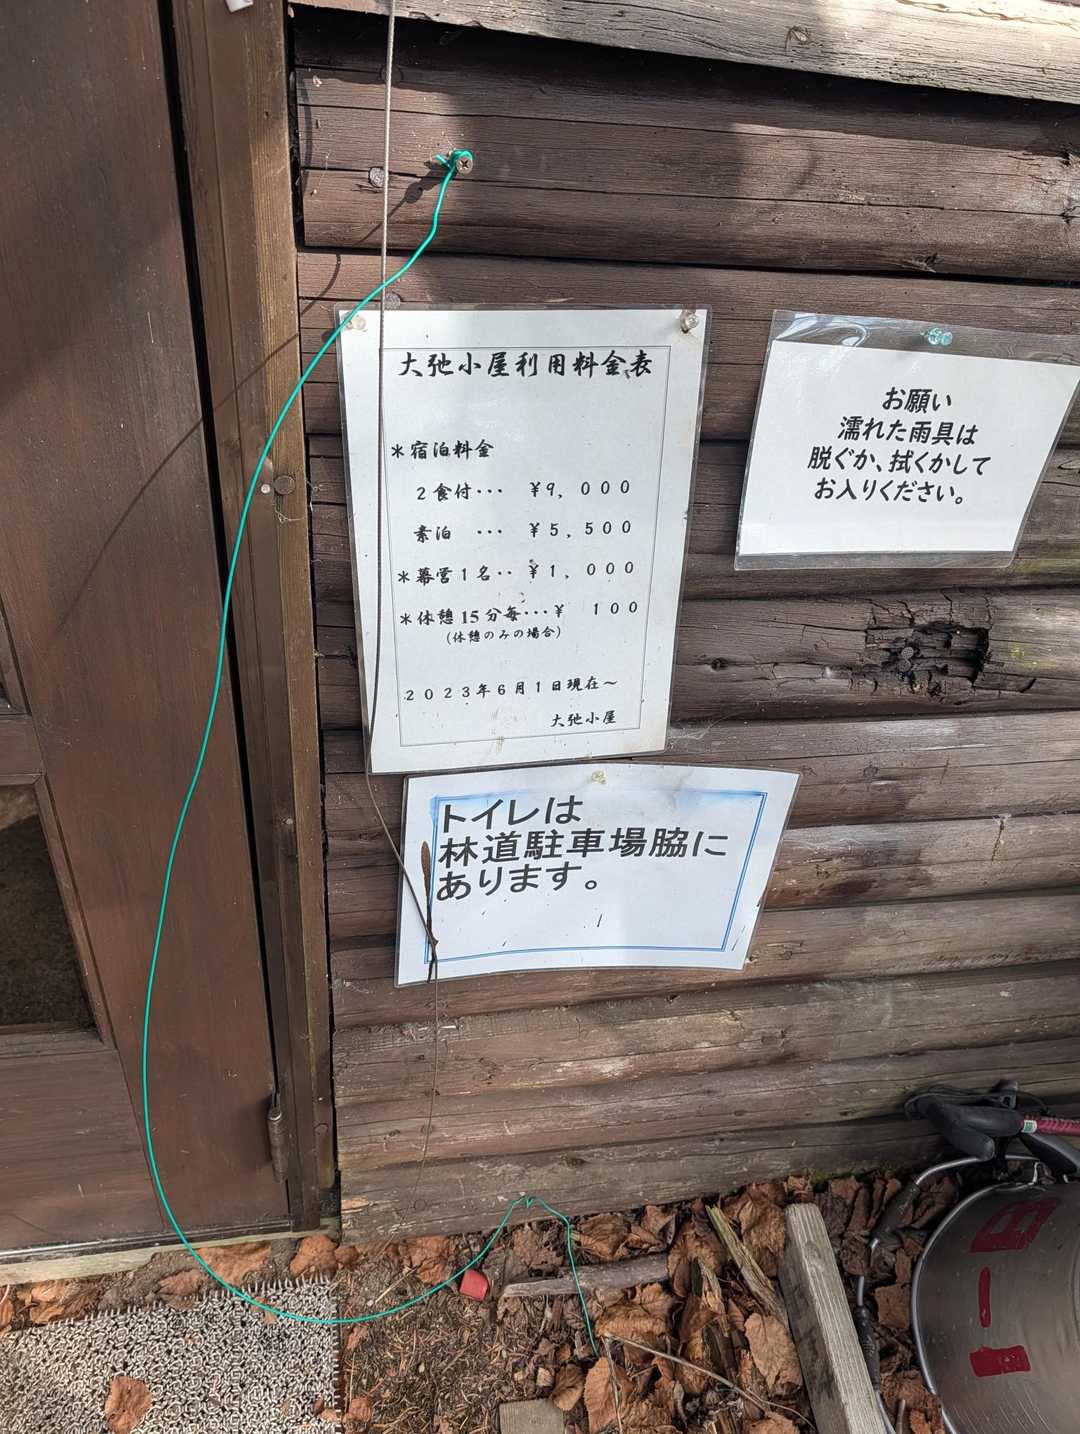 大弛小屋利用料金表
＊宿泊料金
２食付･･･ ￥９，０００
素泊 ･･･ ￥５，５００
＊幕営１名･･ ￥１，０００
＊休憩15分毎･･･￥ １００
（休憩のみの場合）
２０２３年６月１日現在～
大弛小屋
お願い
濡れた雨具は
脱ぐか、拭くかして
お入りください。
トイレは
林道駐車場脇に
あります。